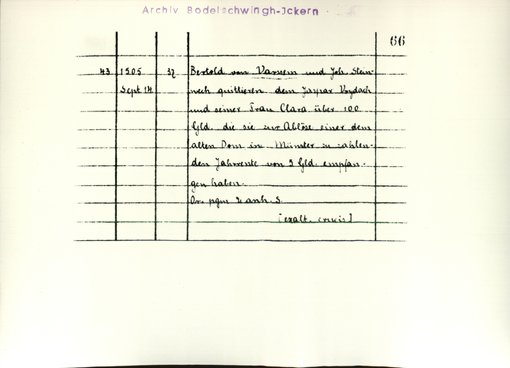 Archiv Bodelschwingh-Ickern
66
43 1505 37 Bertold von Varnem und Joh. Stein-
Sept. 14. wech quittieren dem Jaspar
und seiner Frau Clara über 100
Gld. die sie zur Ablöse einer dem
alten Dom in Münster zu zahlen-
den Jahrrente von 5 Gld. empfan-
gen haben.
Or. pgm 2 anh. S.
[exalt. crucis]